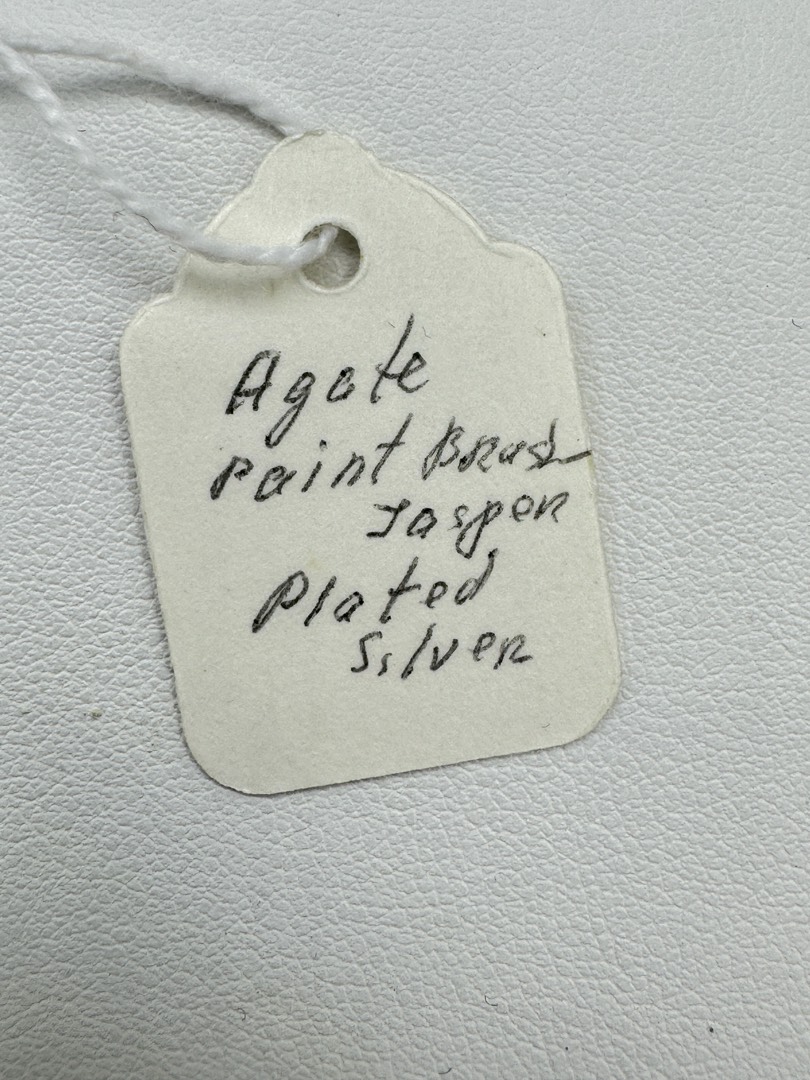 Agate
Paint Brush
Jasper
Plated
Silver